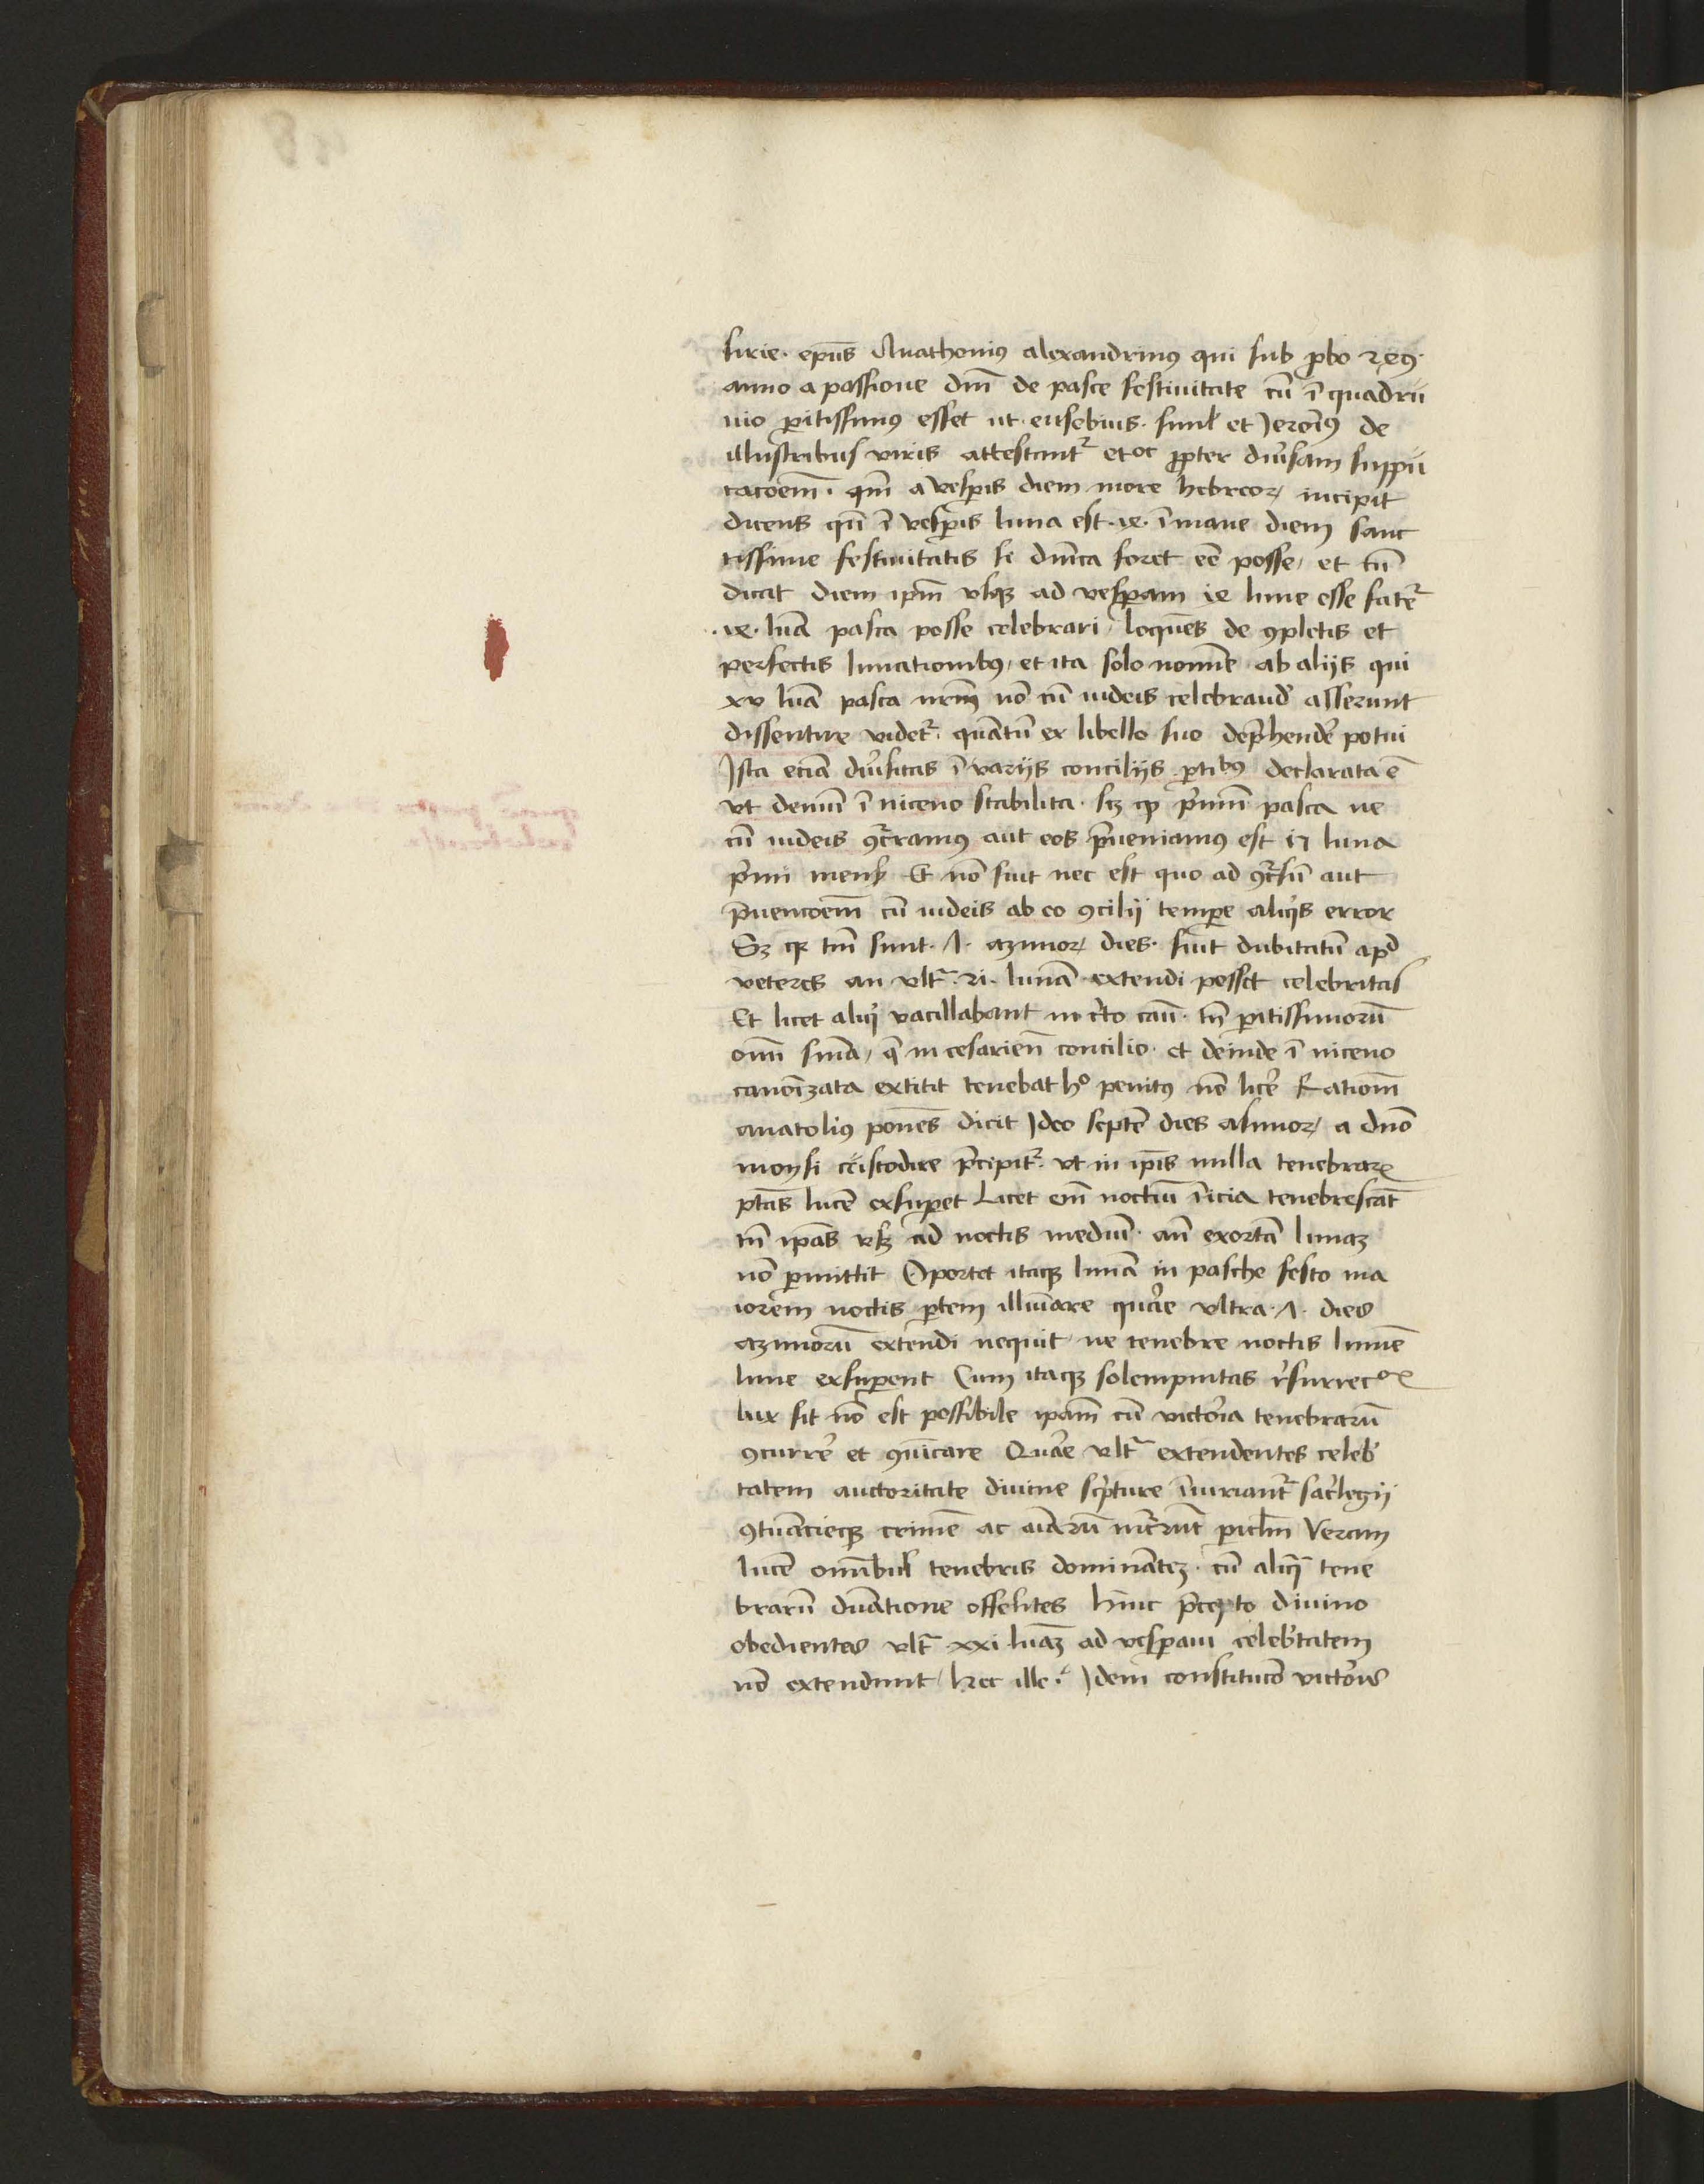 sirie · ep̄us Anathonius alexandrinꝯ qui sub ꝓbo 249·
anno a passione dn̄i de pasce festiuitate cū ī quadru
uio ꝑitissimꝯ esset ut · eusebius · simꝉ et Jeronīꝯ de
illustribus viris attestant᷑ et oc ꝓpter diu͛sam suppu
tacōem̄ · qm̄ a vesꝑis diem more hebreoꝝ incipit
dicens qn̄ ī vesꝑis luna est · 14 · ī mane diem sanc
tissime festiuitatis si dn̄ica foret eē posse / et tn̄
dicat diem ip̄m vsqꝫ ad vesꝑam 14 lune esse fatet᷑
· 14 · lūa pasca posse celebrari / loquēs de ꝯpletis et
perfectis lunationibꝯ / et ita solo nomīe ab aliis qui
xv lūa pasca nr̄m nō cū iudeis celebrand̾ asserunt
dissentire videt᷑ · quātū ex libello suo dep̄hende͛ potui
Ista eciā diu͛sitas ī variis conciliis ꝑtibꝯ declarata ē
vt demū ī niceno stabilita · sꝫ ꝙ p͛mū pasca ne
cū iudeis ꝯc͛ramꝯ aut eos p̄ueniamꝯ est 15 luna
p͛mi mens̾ Et nō fuit nec est quo ad ꝯc͛sū aut
p̄uencōem̄ cū iudeis ab eo ꝯcilii tempe͛ aliq͛s error
Sꝫ qꝛ tm̄ sunt · 7 · azimoꝝ dies · fuit dubitatū apd̾
veteres an vlt᷑ · 21 · lunā extendi posset celebritas
Et licet aliq̾ vacillabant in c͛to cau · tn̄ ꝑitissimorū
om̄i sniā / q̄ in cesarien̄ concilio · et deinde ī niceno
canoīzata extitit tenebat hº penitꝯ nō lice͛ Rationē
anatoliꝯ ponēs dicit Ideo septē dies asimoꝝ a dn̄o
moysi custodire p̄cipit᷑ · vt in ip̄is nulla tenebraꝝ
p̄tas lucē exsuꝑet Licet em̄ noctiū inicia tenebrescāt
tn̄ ip̄as vsqꝫ ad noctis mediū · an̄ exortā lunaꝫ
nō ꝑmittit Oportet itaqꝫ lunā in pasche festo ma
iorem noctis ꝑtem illuīare quare vltra · 7 · dies
azimorū extendi nequit ne tenebre noctis lumē
lune exsuꝑent Cum itaqꝫ solempnitas r͛surrecºꝰ
lux sit nō est possibile ipam̄ cū victoria tenebrarū
ꝯcurre͛ et ꝯuīcare Quare vlt᷑ extendentes celeb͛
tatem auctoritate diuine sc͛pture īiuriant᷑ sac͛legii
ꝯtuācieqꝫ crimē ac aīarū inc͛rūt piclm̄ Veram
lucē omībus tenebris dominātē · cū aliq̄ tene
brarū duatione offeretes hinc p̄cepto diuino
obedientes vlt᷑ xxi lūaꝫ ad vesꝑam celeb͛tatem
nō extendunt / hec ille · Idem constitucō victoris